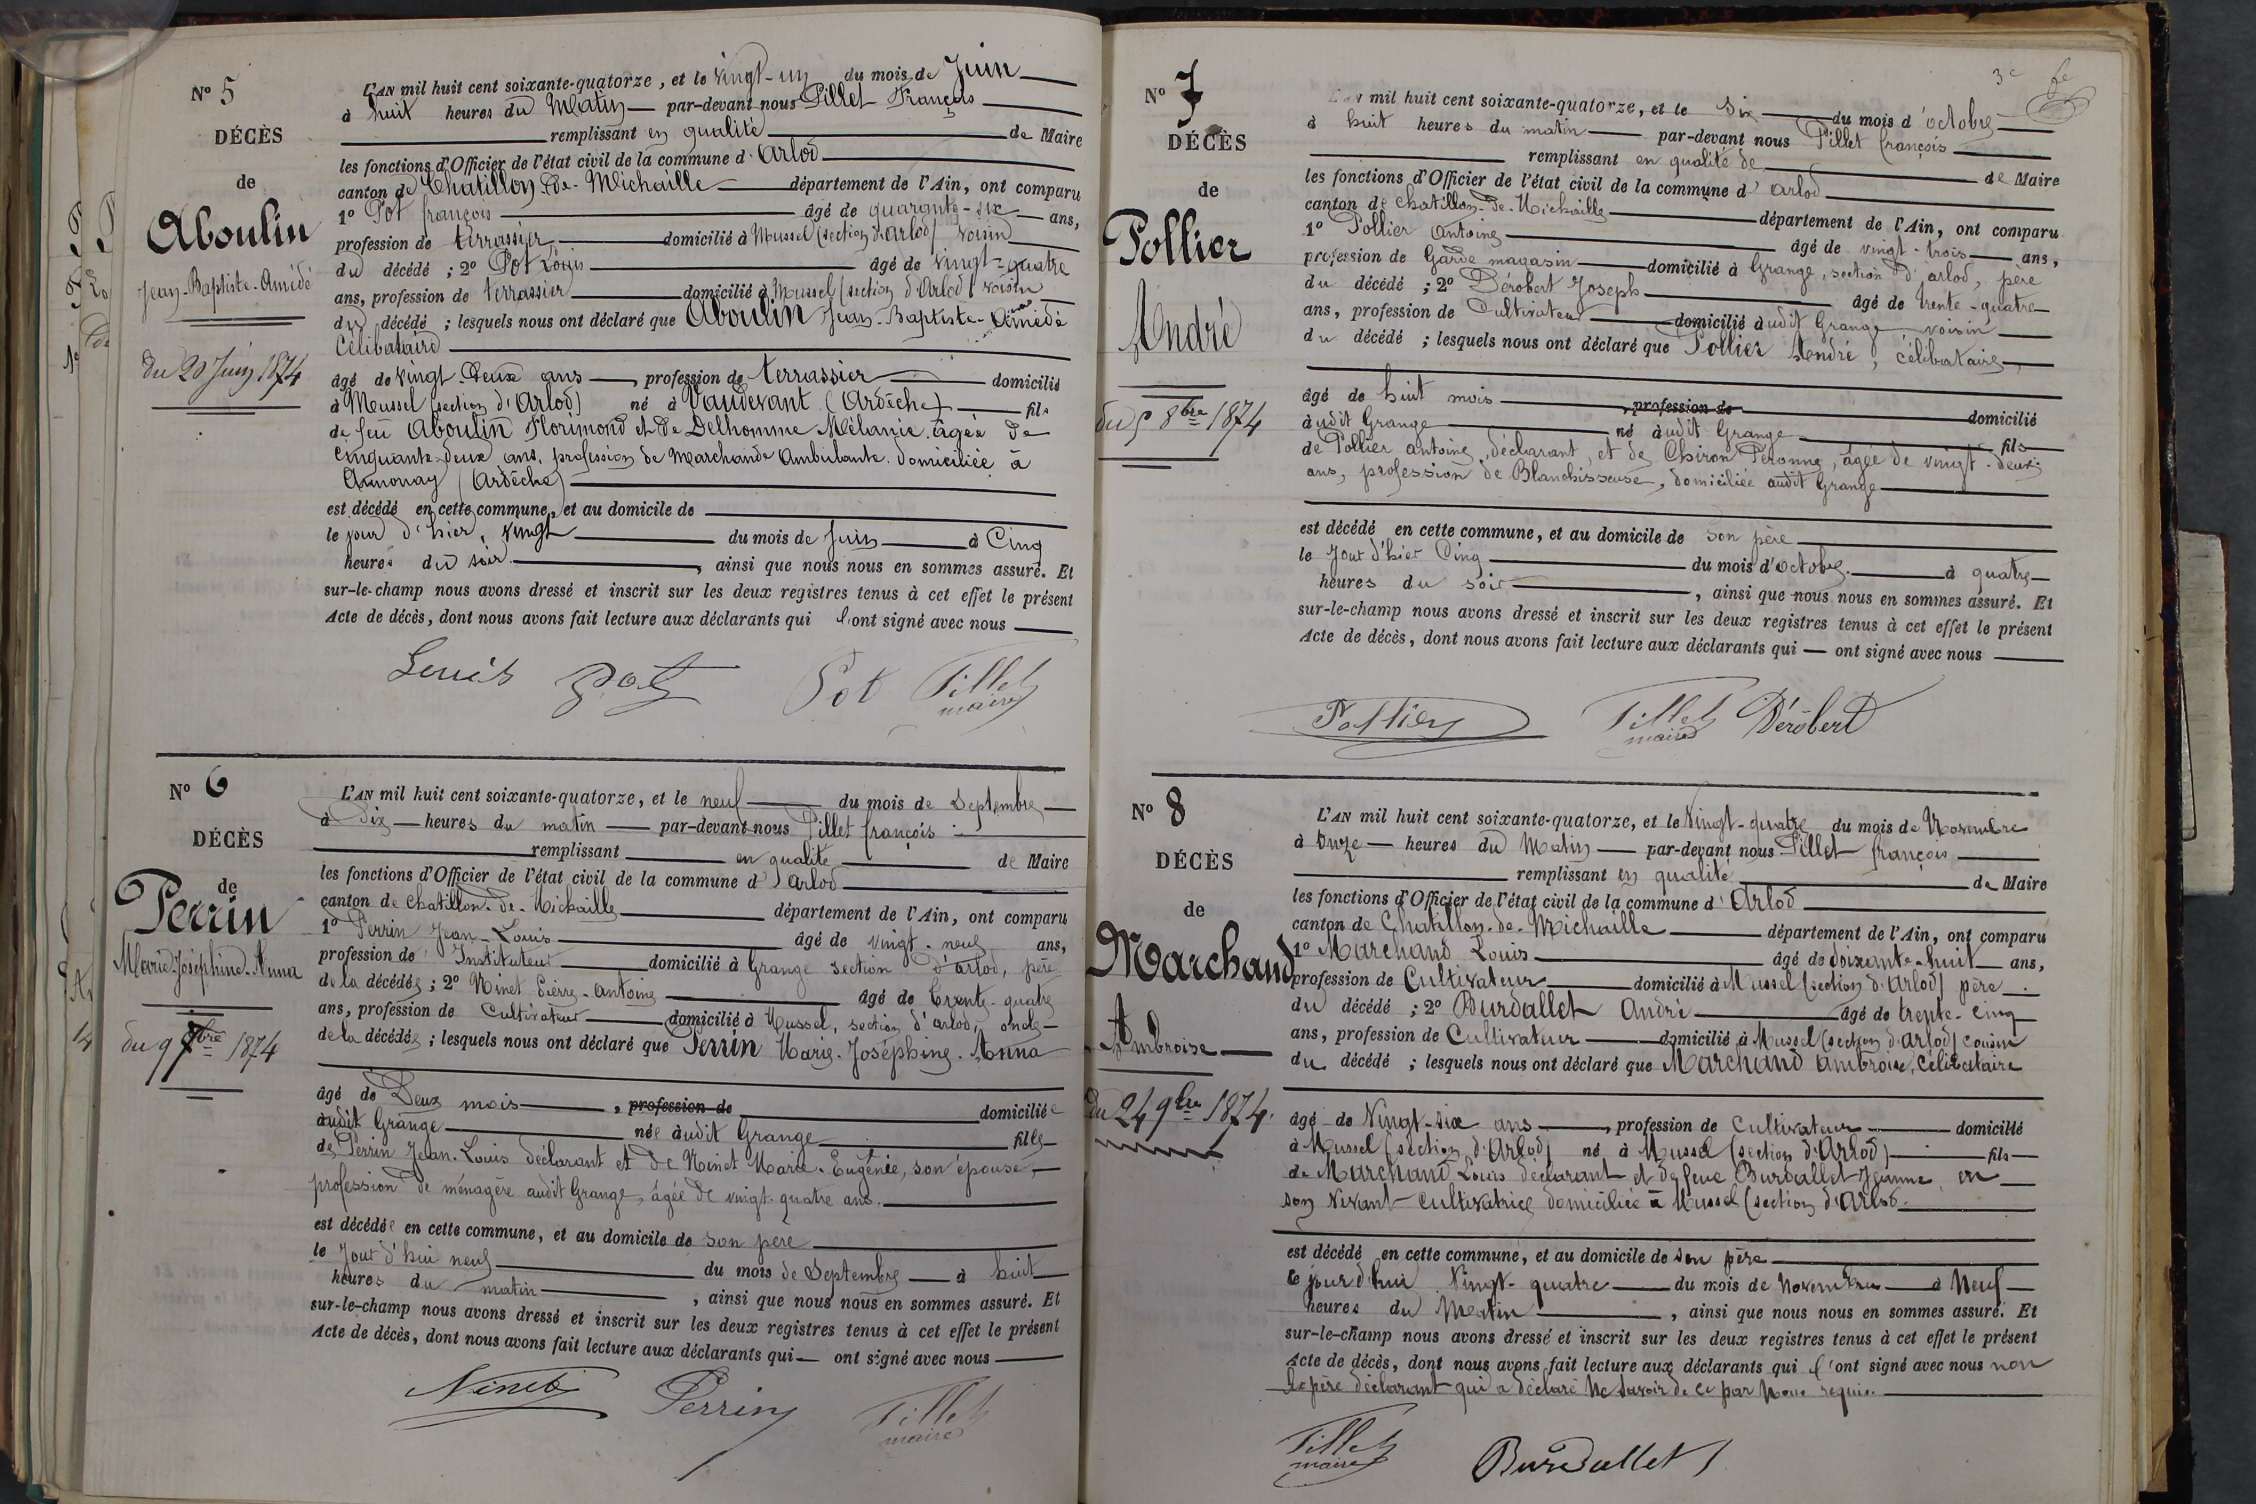 N° 5
DÉCÈS
de
Aboulin
Jean-Baptiste-Amédé
du 20 Juin 1874
L'AN mil huit cent soixante-quatorze, et le vingt-un du mois de Juin
à huit heures du Matin par-devant nous Pillet François
remplissant en qualité de Maire
les fonctions d'Officier de l'état civil de la commune d'Arlod
canton de Chatillon-de-Michaille département de l'Ain, ont comparu
1° Pot françois âgé de quarante-six ans,
profession de terrassier domicilié à Mussel (section d'Arlod) voisin
du décédé ; 2° Pot Louis âgé de vingt-quatre
ans, profession de terrassier domicilié à Mussel (section d'Arlod) voisin
du décédé ; lesquels nous ont déclaré que Aboulin Jean-Baptiste-Amédé
Célibataire
âgé de vingt-deux ans, profession de terrassier domicilié
à Mussel (section d'Arlod) né à Vaudevant (Ardèche) fils
de feu Aboulin Florimond et de Delhomme Mélanie âgée de
cinquante-deux ans, profession de Marchande Ambulante domiciliée à
Annonay (Ardèche)
est décédé en cette commune, et au domicile de
le jour d'hier, vingt du mois de Juin à Cinq
heures du soir, ainsi que nous nous en sommes assuré. Et
sur-le-champ nous avons dressé et inscrit sur les deux registres tenus à cet effet le présent
Acte de décès, dont nous avons fait lecture aux déclarants qui l'ont signé avec nous
Louis Pot Pot Pillet
maire
N° 6
DÉCÈS
de
Perrin
Marie-Joséphine-Anna
du 9 7bre 1874
L'AN mil huit cent soixante-quatorze, et le neuf du mois de Septembre
à Dix heures du matin par-devant nous Pillet françois
remplissant en qualité de Maire
les fonctions d'Officier de l'état civil de la commune d'Arlod
canton de Chatillon-de-Michaille département de l'Ain, ont comparu
1° Perrin Jean-Louis âgé de vingt-neuf ans,
profession de Instituteur domicilié à Grange section d'arlod, père
de la décédée ; 2° Ninet Pierre-Antoine âgé de trente-quatre
ans, profession de Cultivateur domicilié à Mussel, section d'arlod, oncle
de la décédée ; lesquels nous ont déclaré que Perrin Marie-Joséphine-Anna
âgé de Deux mois, profession de domiciliée
audit Grange née audit Grange fille
de Perrin Jean-Louis déclarant et de Ninet Marie-Eugénie, son épouse,
profession de ménagère audit Grange, âgée de vingt-quatre ans.
est décédée en cette commune, et au domicile de son père
le Jour d'hui neuf du mois de Septembre à huit
heures du matin, ainsi que nous nous en sommes assuré. Et
sur-le-champ nous avons dressé et inscrit sur les deux registres tenus à cet effet le présent
Acte de décès, dont nous avons fait lecture aux déclarants qui ont signé avec nous
Ninet Perrin Pillet
maire
3e fe
N° 7
DÉCÈS
de
Pollier
André
du 5 8bre 1874
L'an mil huit cent soixante-quatorze, et le Six du mois d'octobre
à huit heures du matin par-devant nous Pillet françois
remplissant en qualité de de Maire
les fonctions d'Officier de l'état civil de la commune d'arlod
canton de Chatillon-de-Michaille département de l'Ain, ont comparu
1° Pollier Antoine âgé de vingt-trois ans,
profession de Garde magasin domicilié à Grange, section d'arlod, père
du décédé ; 2° Dérobert Joseph âgé de trente-quatre
ans, profession de Cultivateur domicilié audit Grange voisin
du décédé ; lesquels nous ont déclaré que Pollier André, célibataire,
âgé de huit mois, profession de domicilié
audit Grange né audit Grange fils
de Pollier antoine, déclarant, et de Chiron Péronne, âgée de vingt-deux
ans, profession de Blanchisseuse, domiciliée audit Grange
est décédé en cette commune, et au domicile de son père
le Jour d'hier Cinq du mois d'octobre à quatre
heures du soir, ainsi que nous nous en sommes assuré. Et
sur-le-champ nous avons dressé et inscrit sur les deux registres tenus à cet effet le présent
Acte de décès, dont nous avons fait lecture aux déclarants qui ont signé avec nous
Pollier Pillet Dérobert
maire
N° 8
DÉCÈS
de
Marchand
Ambroise
du 24 9bre 1874.
L'AN mil huit cent soixante-quatorze, et le Vingt-quatre du mois de Novembre
à Onze heures du Matin par-devant nous Pillet françois
remplissant en qualité de Maire
les fonctions d'Officier de l'état civil de la commune d'Arlod
canton de Chatillon-de-Michaille département de l'Ain, ont comparu
1° Marchand Louis âgé de soixante-huit ans,
profession de Cultivateur domicilié à Mussel (section d'Arlod) père
du décédé ; 2° Burdallet André âgé de trente-cinq
ans, profession de Cultivateur domicilié à Mussel (section d'Arlod) cousin
du décédé ; lesquels nous ont déclaré que Marchand Ambroise, célibataire
âgé de Vingt-six ans, profession de Cultivateur domicilié
à Mussel (section d'Arlod) né à Mussel (section d'Arlod) fils
de Marchand Louis déclarant et de feue Burdallet Jeanne en
son vivant cultivatrice domiciliée à Mussel (section d'Arlod.
est décédé en cette commune, et au domicile de son père
le jour d'hui Vingt-quatre du mois de Novembre à Neuf
heures du Matin, ainsi que nous nous en sommes assuré. Et
sur-le-champ nous avons dressé et inscrit sur les deux registres tenus à cet effet le présent
Acte de décès, dont nous avons fait lecture aux déclarants qui l'ont signé avec nous non
le père déclarant qui a déclaré ne savoir de ce par nous requis.
Pillet Burdallet
maire